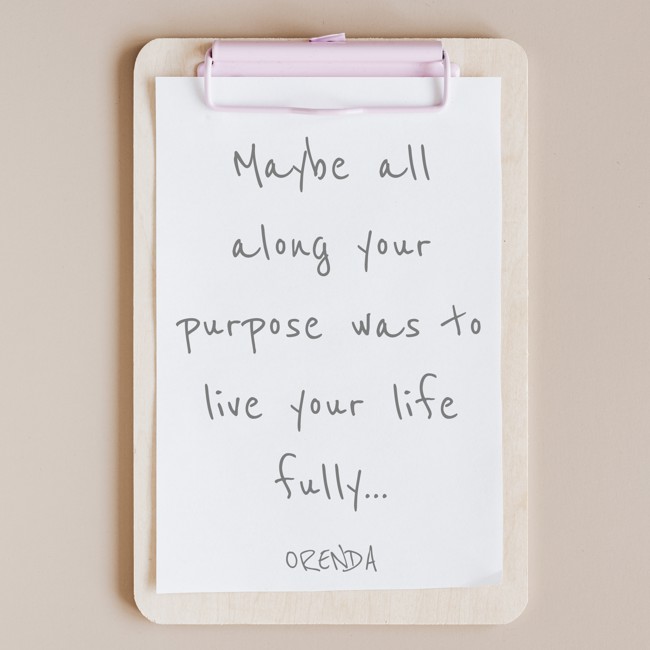 Maybe all
along your
purpose was to
live your life
fully...
ORENDA